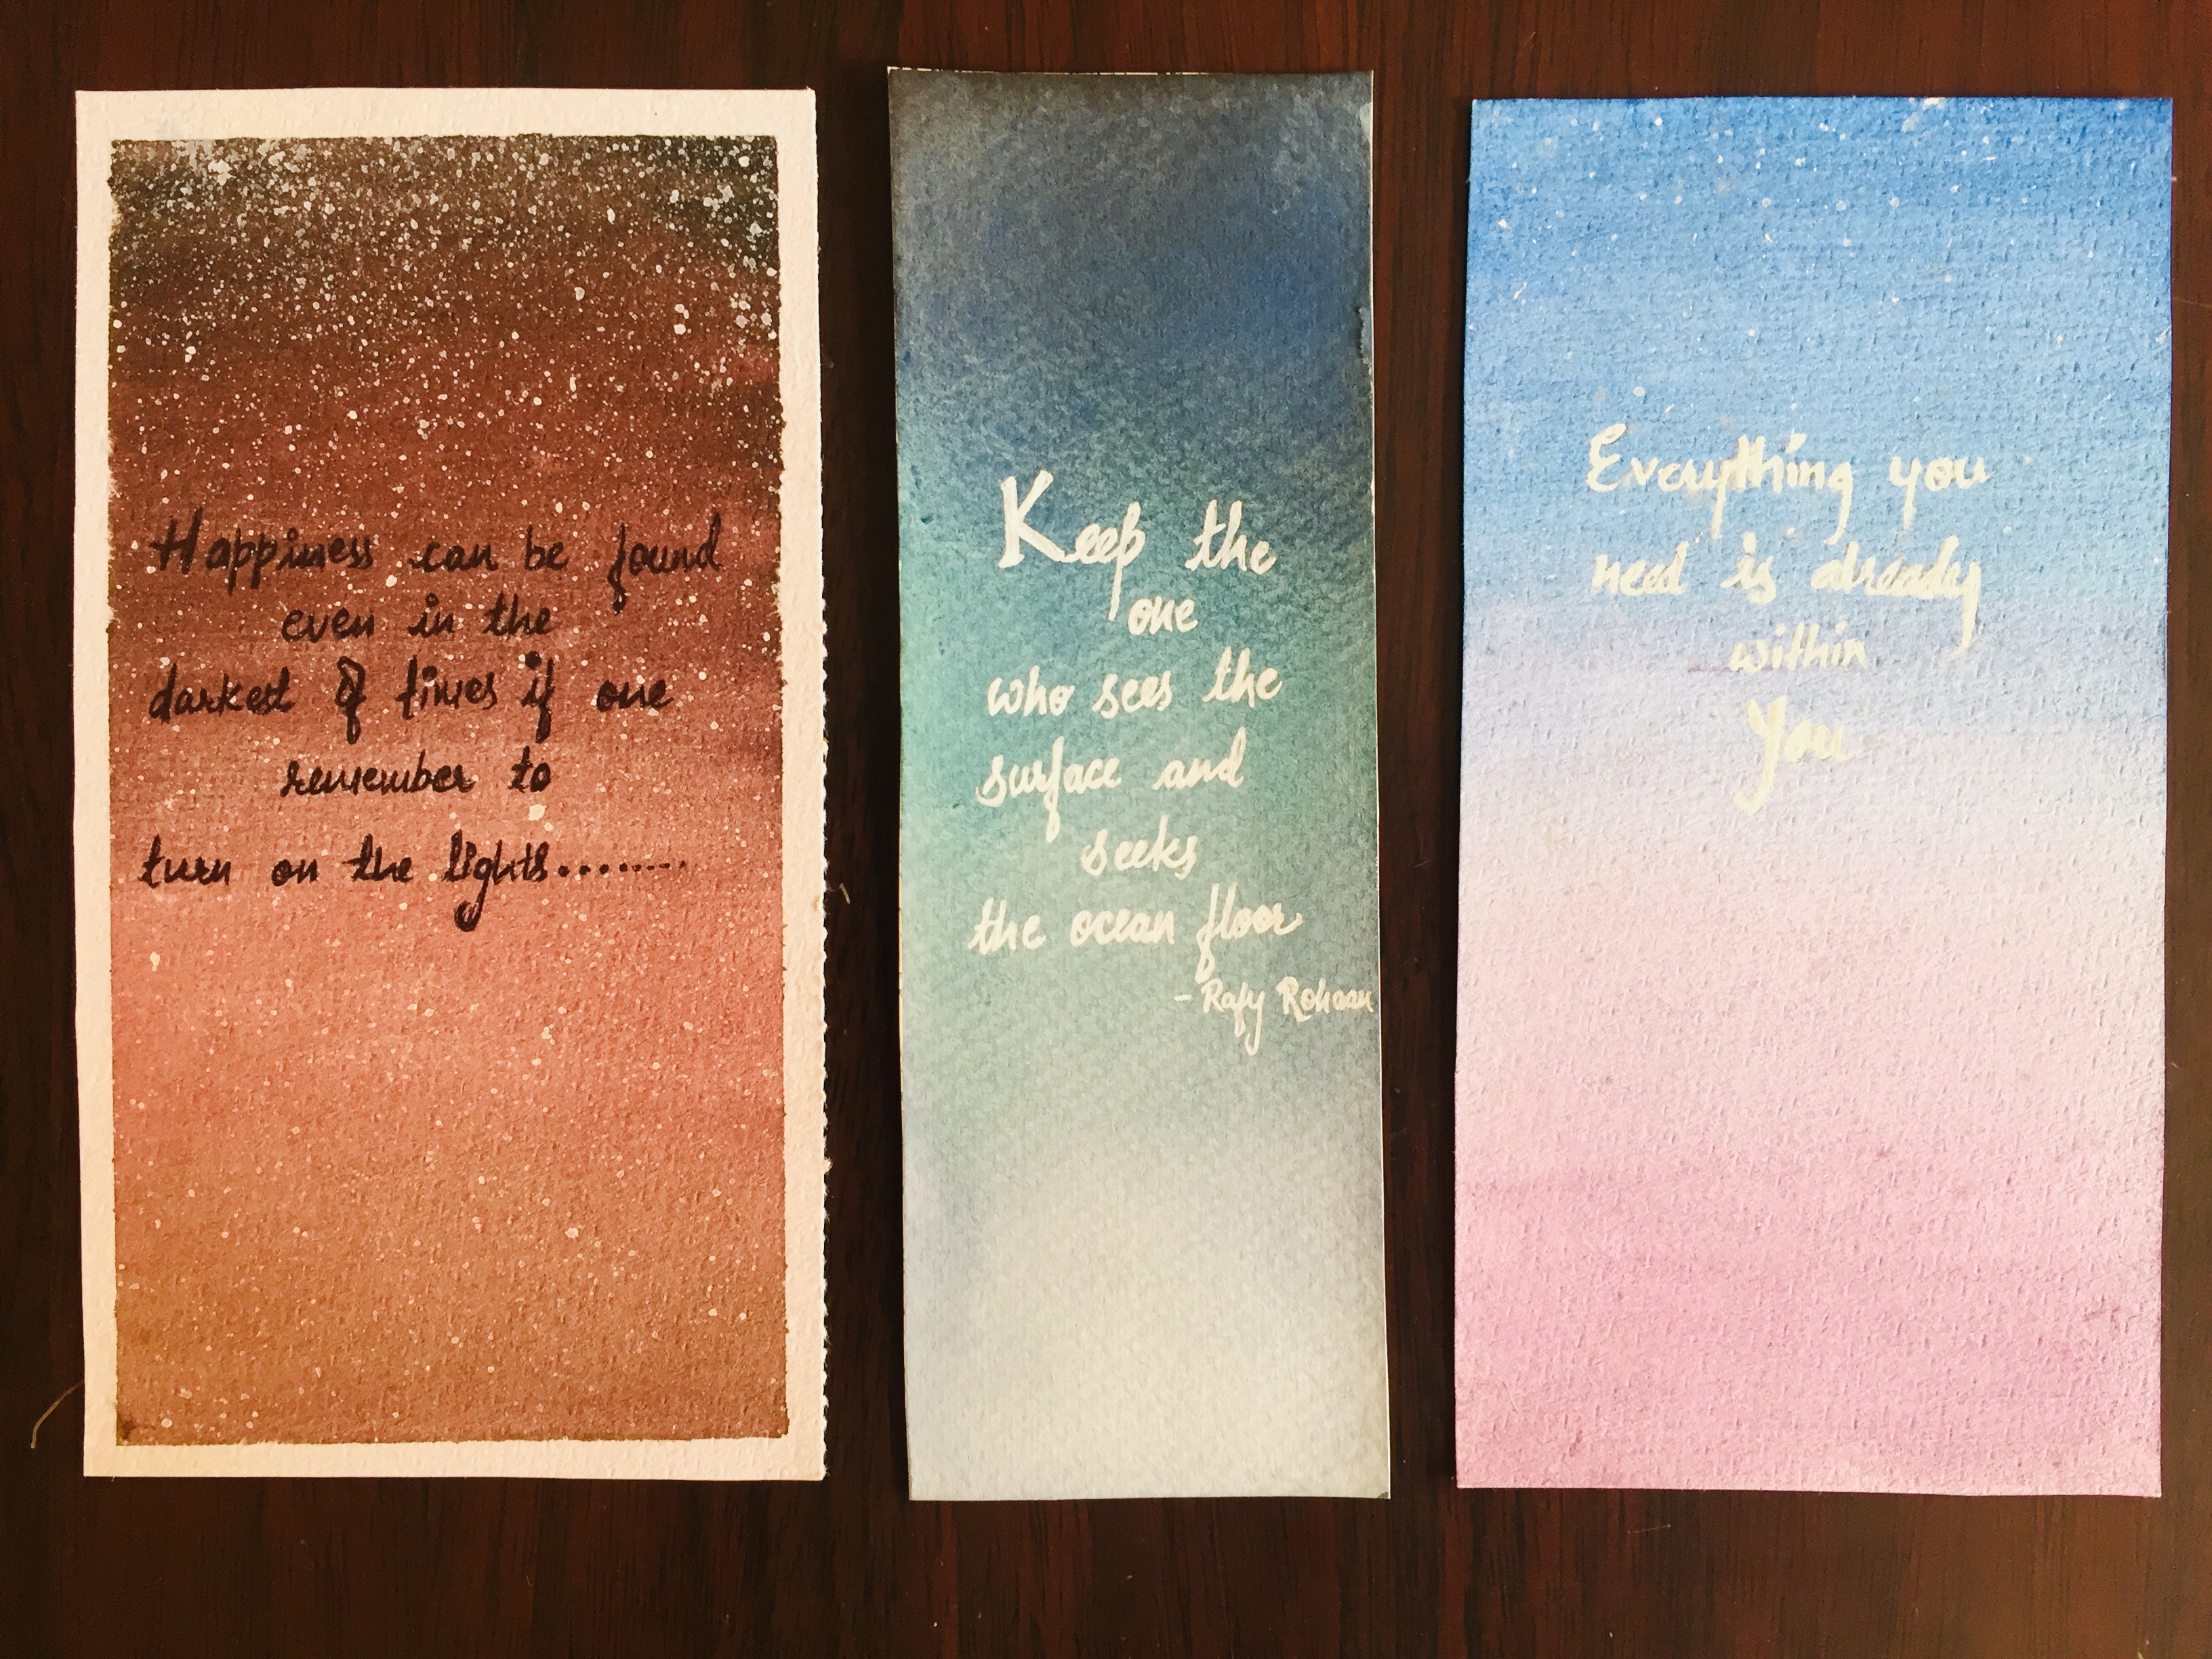 Happiness can be found
even in the
darkest of times if one
remember to
turn on the lights........
Keep the
one
who sees the
surface and
seeks
the ocean floor
- Rafy Rohaan
Everything you
need is already
within
You